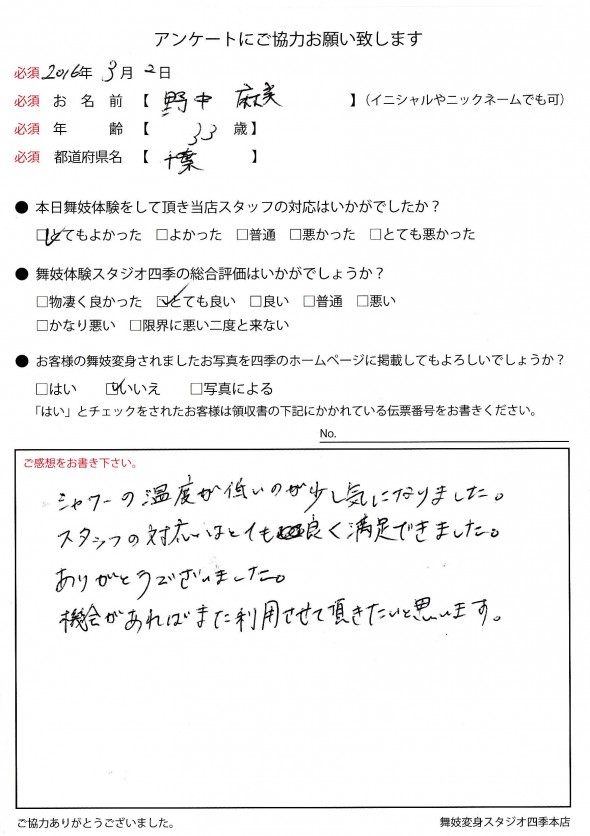 アンケートにご協力お願い致します
必須 2016年 3月 2日
必須 お名前【 野中 麻実 】（イニシャルやニックネームでも可）
必須 年齢【 33 歳】
必須 都道府県名【 千葉 】
● 本日舞妓体験をして頂き当店スタッフの対応はいかがでしたか？
☑とてもよかった □よかった □普通 □悪かった □とても悪かった
● 舞妓体験スタジオ四季の総合評価はいかがでしょうか？
□物凄く良かった ☑とても良い □良い □普通 □悪い
□かなり悪い □限界に悪い二度と来ない
● お客様の舞妓変身されましたお写真を四季のホームページに掲載してもよろしいでしょうか？
□はい ☑いいえ □写真による
「はい」とチェックをされたお客様は領収書の下記にかかれている伝票番号をお書きください。
No.
ご感想をお書き下さい。
シャワーの温度が低いのが少し気になりました。
スタッフの対応はとても良く満足できました。
ありがとうございました。
機会があればまた利用させて頂きたいと思います。
ご協力ありがとうございました。 舞妓変身スタジオ四季本店